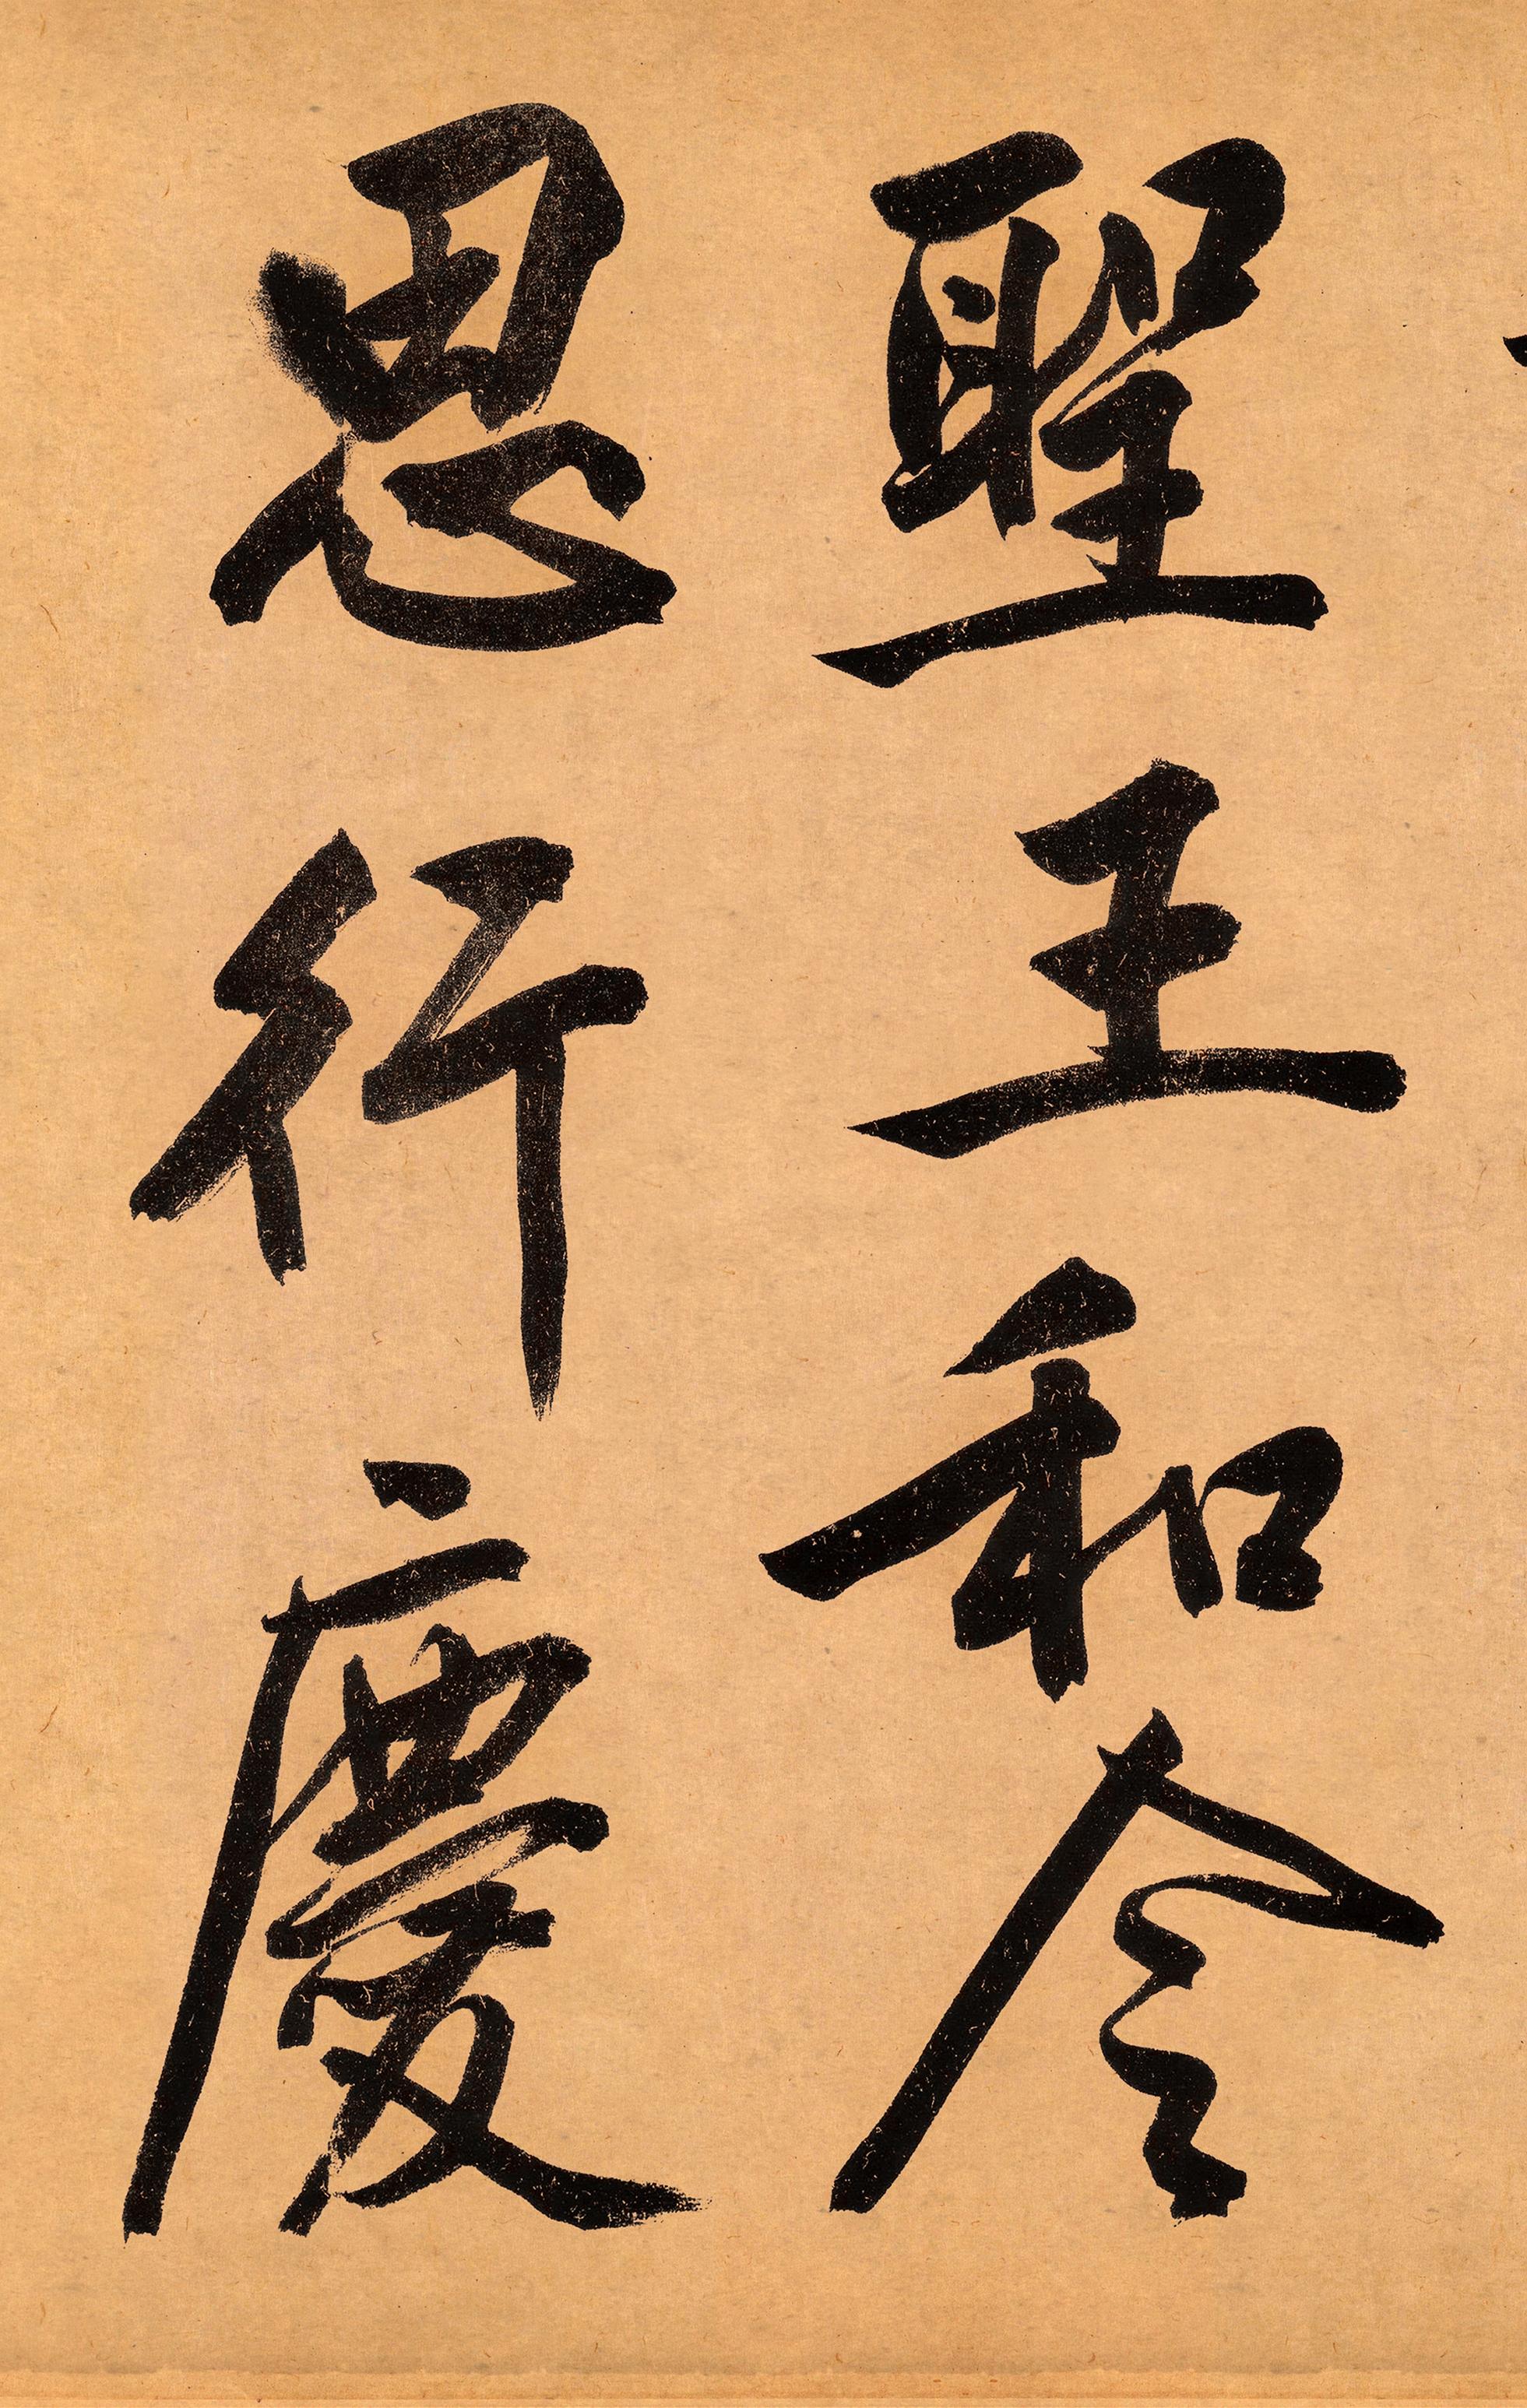 聖王和令
思行慶